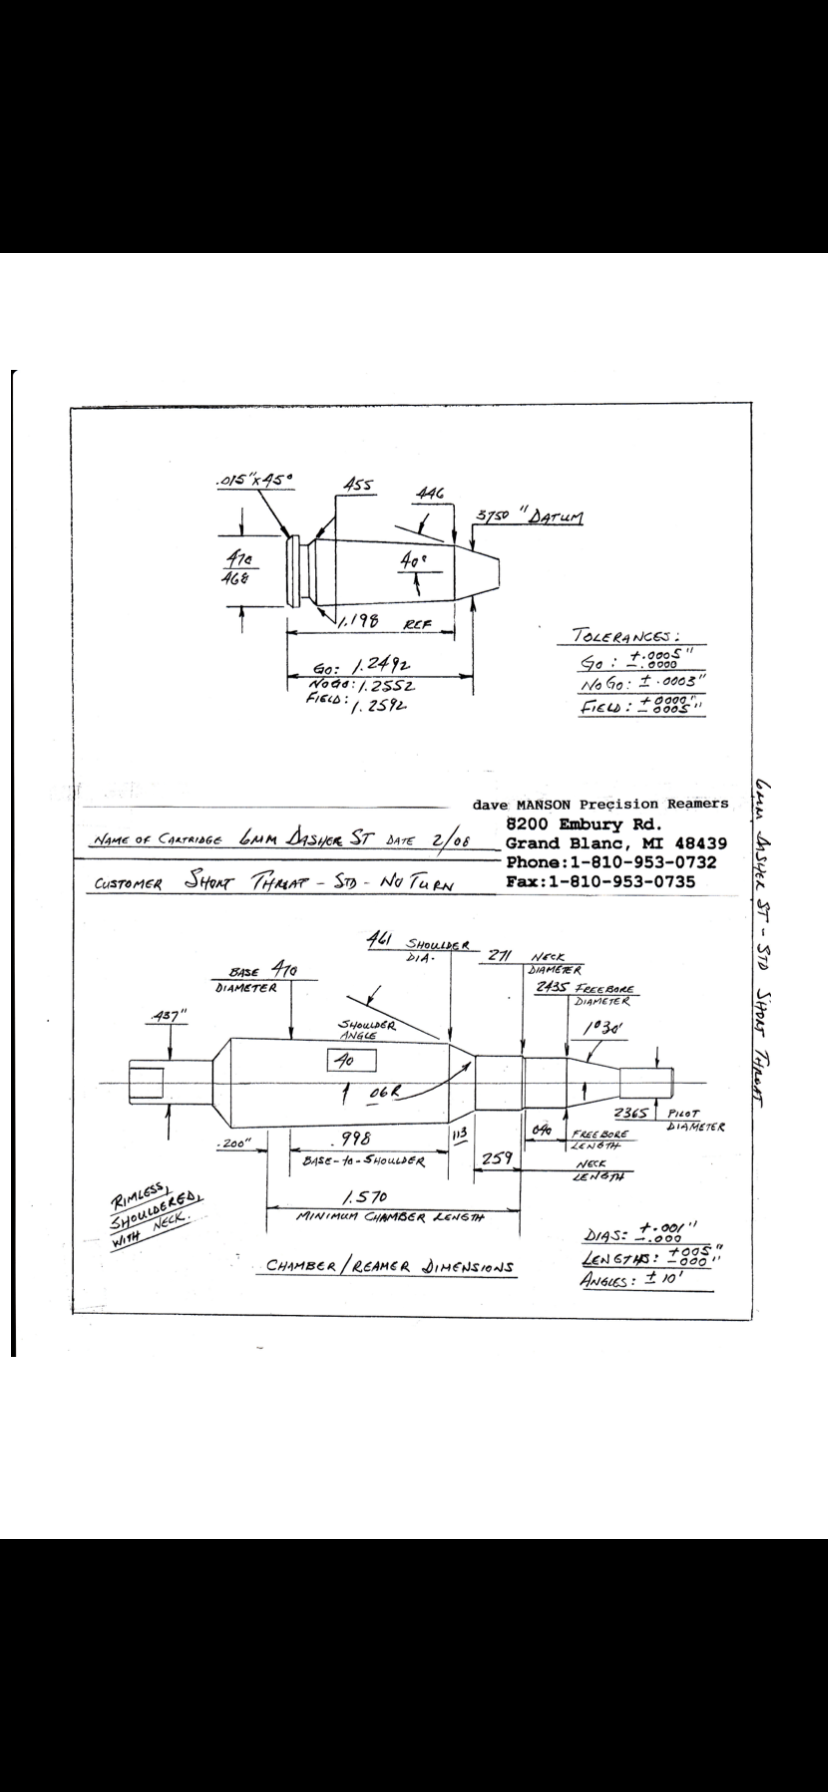 .015"x45°
455
446
3750 "DATUM
470
468
40°
1.198 REF
GO: 1.2492
NOGO: 1.2552
FIELD: 1.2592
TOLERANCES:
GO: +.0005"
-.0000
NOGO: ±.0003"
FIELD: +0000"
-0005"
dave MANSON Precision Reamers
8200 Embury Rd.
Grand Blanc, MI 48439
Phone:1-810-953-0732
Fax:1-810-953-0735
NAME OF CARTRIDGE 6MM DASHER ST DATE 2/08
CUSTOMER SHORT THROAT - STD - NO TURN
6MM DASHER ST - STD SHORT THROAT
461 SHOULDER
DIA.
271 NECK
DIAMETER
BASE 470
DIAMETER
2435 FREEBORE
DIAMETER
.437"
SHOULDER
ANGLE
1°30'
40
.06R
2365 PILOT
DIAMETER
.200"
.998
BASE-to-SHOULDER
113
259
NECK
LENGTH
040
FREEBORE
LENGTH
1.570
MINIMUM CHAMBER LENGTH
RIMLESS,
SHOULDERED,
WITH NECK.
CHAMBER/REAMER DIMENSIONS
DIAS: +.001"
-.000
LENGTHS: +005"
-000"
ANGLES: ± 10'